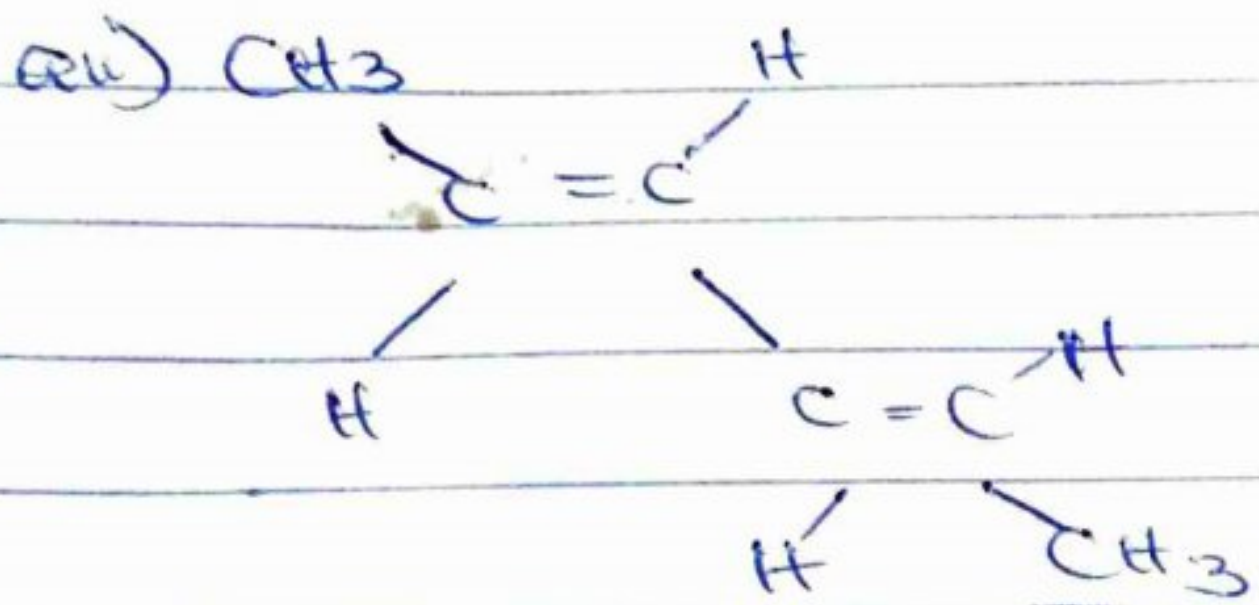 CH3 H
C = C
H C = C H
H CH3